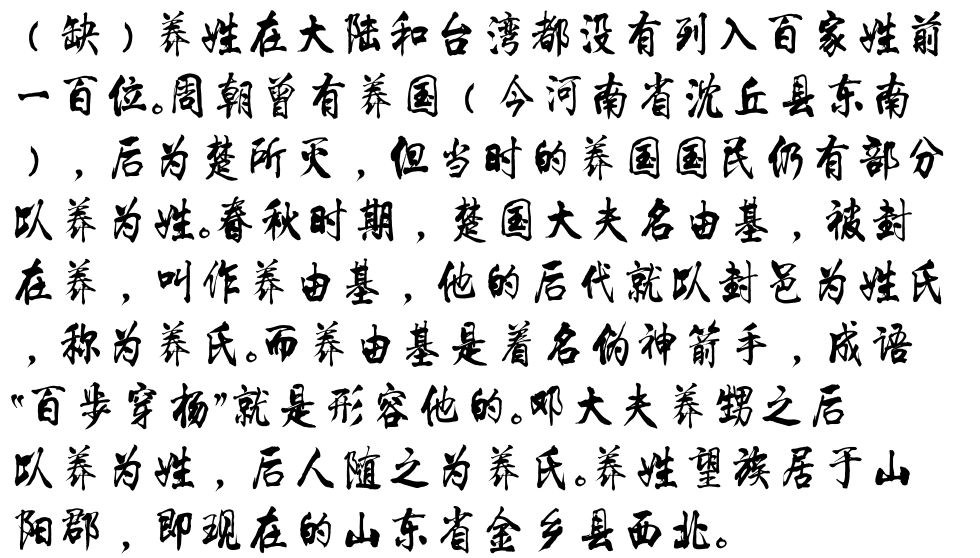 （缺）养姓在大陆和台湾都没有列入百家姓前
一百位。周朝曾有养国（今河南省沈丘县东南
），后为楚所灭，但当时的养国国民仍有部分
以养为姓。春秋时期，楚国大夫名由基，被封
在养，叫作养由基，他的后代就以封邑为姓氏
，称为养氏。而养由基是着名的神箭手，成语
“百步穿杨”就是形容他的。邓大夫养甥之后
以养为姓，后人随之为养氏。养姓望族居于山
阳郡，即现在的山东省金乡县西北。